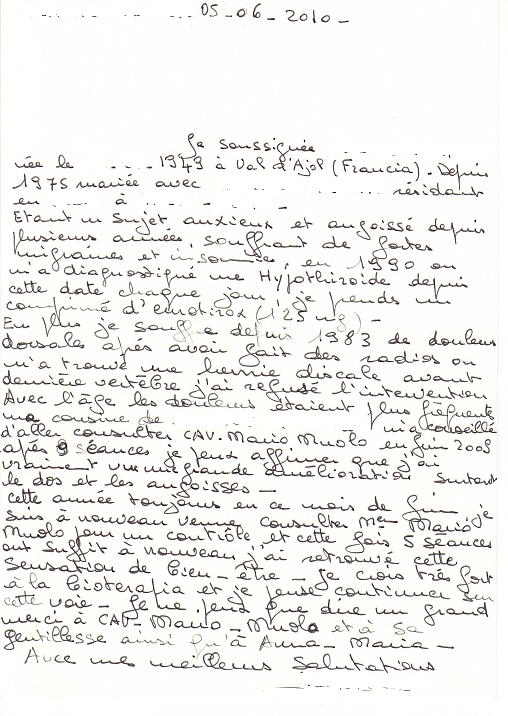 05-06-2010-
Je soussignée
née le 1949 à Val d'Ajol (Francia). Depuis
1975 mariée avec résidant
en à
Etant un sujet anxieux et angoissé depuis
plusieurs années, souffrant de fortes
migraines et insomnies, en 1990 on
m'a diagnostiqué une Hypothiroide depuis
cette date chaque jour, je prends un
comprimé d'emotirox (125 mg)-
En plus je souffre depuis 1983 de douleurs
dorsales après avoir fait des radios on
m'a trouvé une hernie discale avant
dernière vertèbre j'ai refusé l'intervention
Avec l'âge les douleurs étaient plus fréquentes
ma cousine de m'a conseillé
d'aller consulter CAV. Mario Muolo en juin 2009
après 9 séances je peux affirmer que j'ai
vraiment vu une grande amélioration surtout
le dos et les angoisses-
cette année toujours en ce mois de Juin je
suis à nouveau venue consulter Mer Mario
Muolo pour un contrôle et cette fois 5 séances
ont suffit à nouveau j'ai retrouvé cette
sensation de bien-être- Je crois très fort
à la bioterapia et je pense continuer sur
cette voie- Je ne peux que dire un grand
merci à CAV- Mario-Muolo et à sa
gentillesse ainsi qu'à Anna-Maria-
Avec mes meilleures salutations